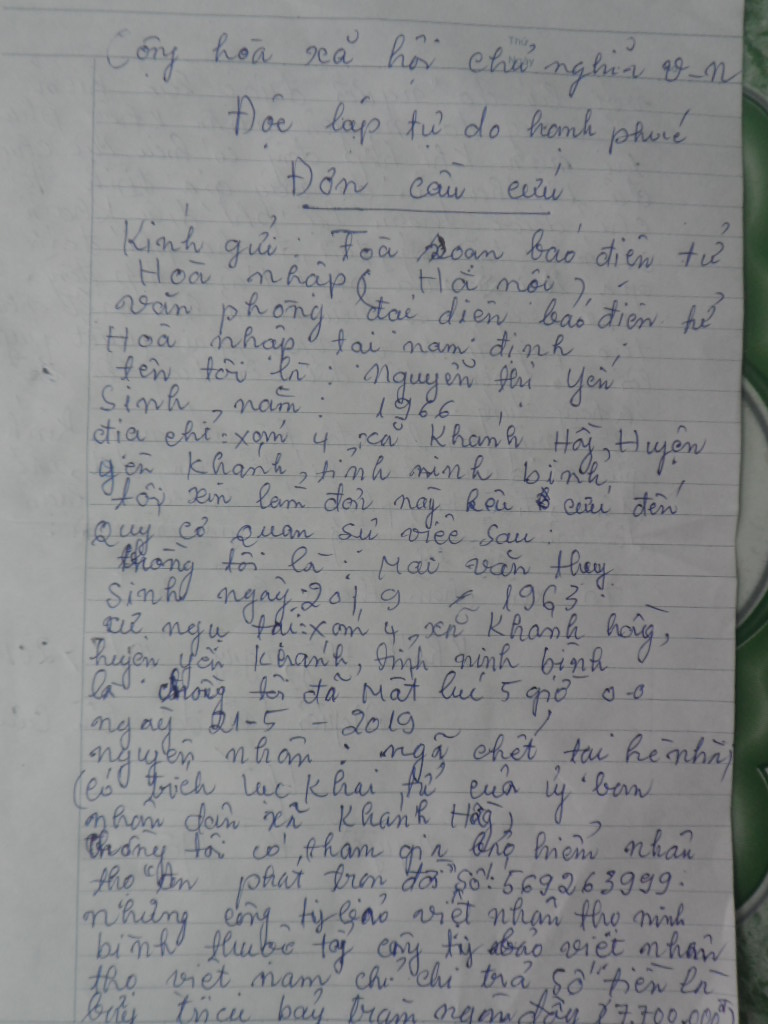 Cộng hoà xã hội chủ nghĩa V-N
Độc lập tự do hạnh phúc
Đơn cầu cứu
Kính gửi: Toà soạn báo điện tử
Hoà nhập ( Hà nội )
văn phòng đại diên báo điên tử
Hoà nhập tại nam định ;
tên tôi là: Nguyễn thị Yến
Sinh năm: 1966
địa chỉ: xóm 4, xã Khánh Hồng, Huyện
yên Khánh, tỉnh ninh bình
tôi xin làm đơn này kêu cứu đến
Quý cơ quan sự việc sau:
chồng tôi là: Mai văn thuy
Sinh ngày: 20/9 1963
cư ngụ tại: xóm 4, xã Khánh hồng,
huyện yên Khánh, tỉnh ninh bình
là chồng tôi đã Mất lúc 5 giờ 00
ngày 21-5-2019
nguyên nhân: ngã chết tại hè nhà
(có trích lục Khai tử của ủy ban
nhân dân xã Khánh Hồng)
chồng tôi có tham gia bảo hiểm nhân
thọ "An phát trọn đời" Số: 569263999.
nhưng công ty bảo việt nhân thọ ninh
bình thuộc tổng công ty bảo việt nhân
thọ việt nam chỉ chi trả số tiền là
bảy triệu bảy trăm ngàn đồng (7.700.000đ)